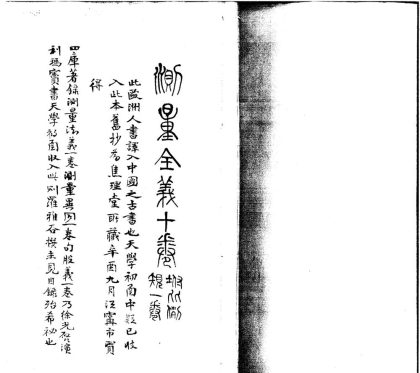 測量全義十卷
坿比例
規一卷
此歐洲人書譯入中國之古書也天學初函中疑已收
入此本舊抄為焦理堂所藏辛酉九月江寧市
得
四庫著錄測量法義一卷測量異同一卷句股義一卷乃徐光啓演
利瑪竇書天學初函收入此則羅雅谷撰未見目錄殆希也